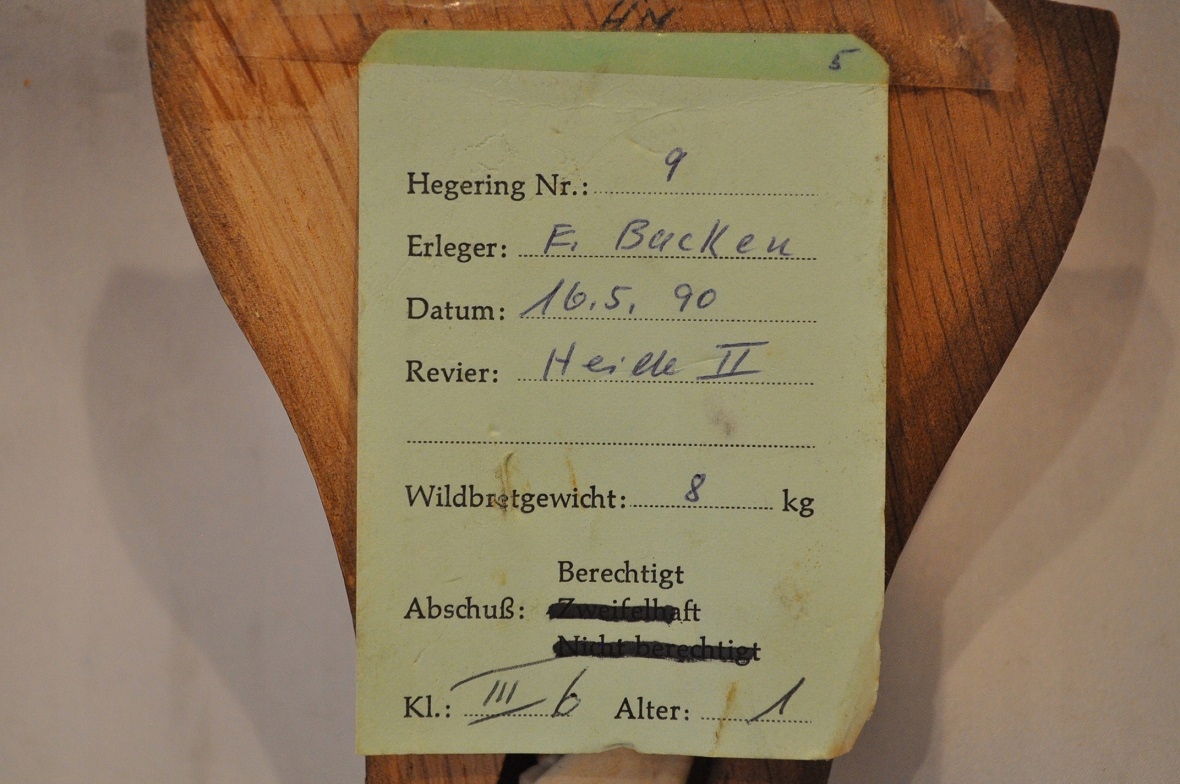 HN
5
Hegering Nr.: 9
Erleger: F. Backen
Datum: 16.5. 90
Revier: Heide II
Wildbretgewicht: 8 kg
Berechtigt
Abschuß: Zweifelhaft
Nicht berechtigt
Kl.: III b Alter: 1